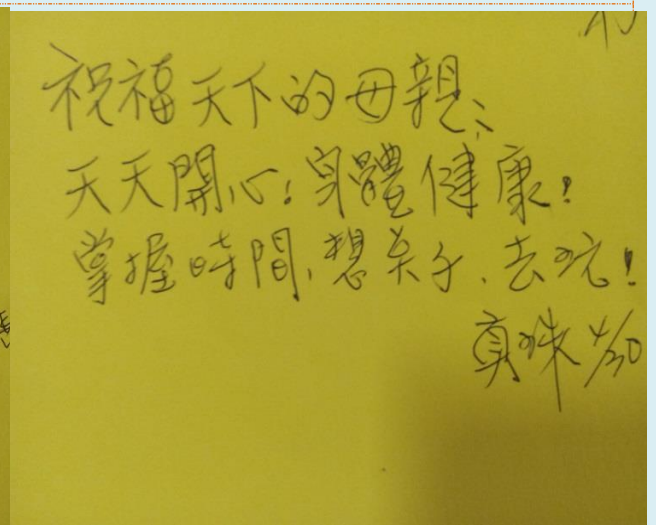 祝福天下的母親、
天天開心!身體健康!
掌握時間,想关子、去玩!
真珠 4/30